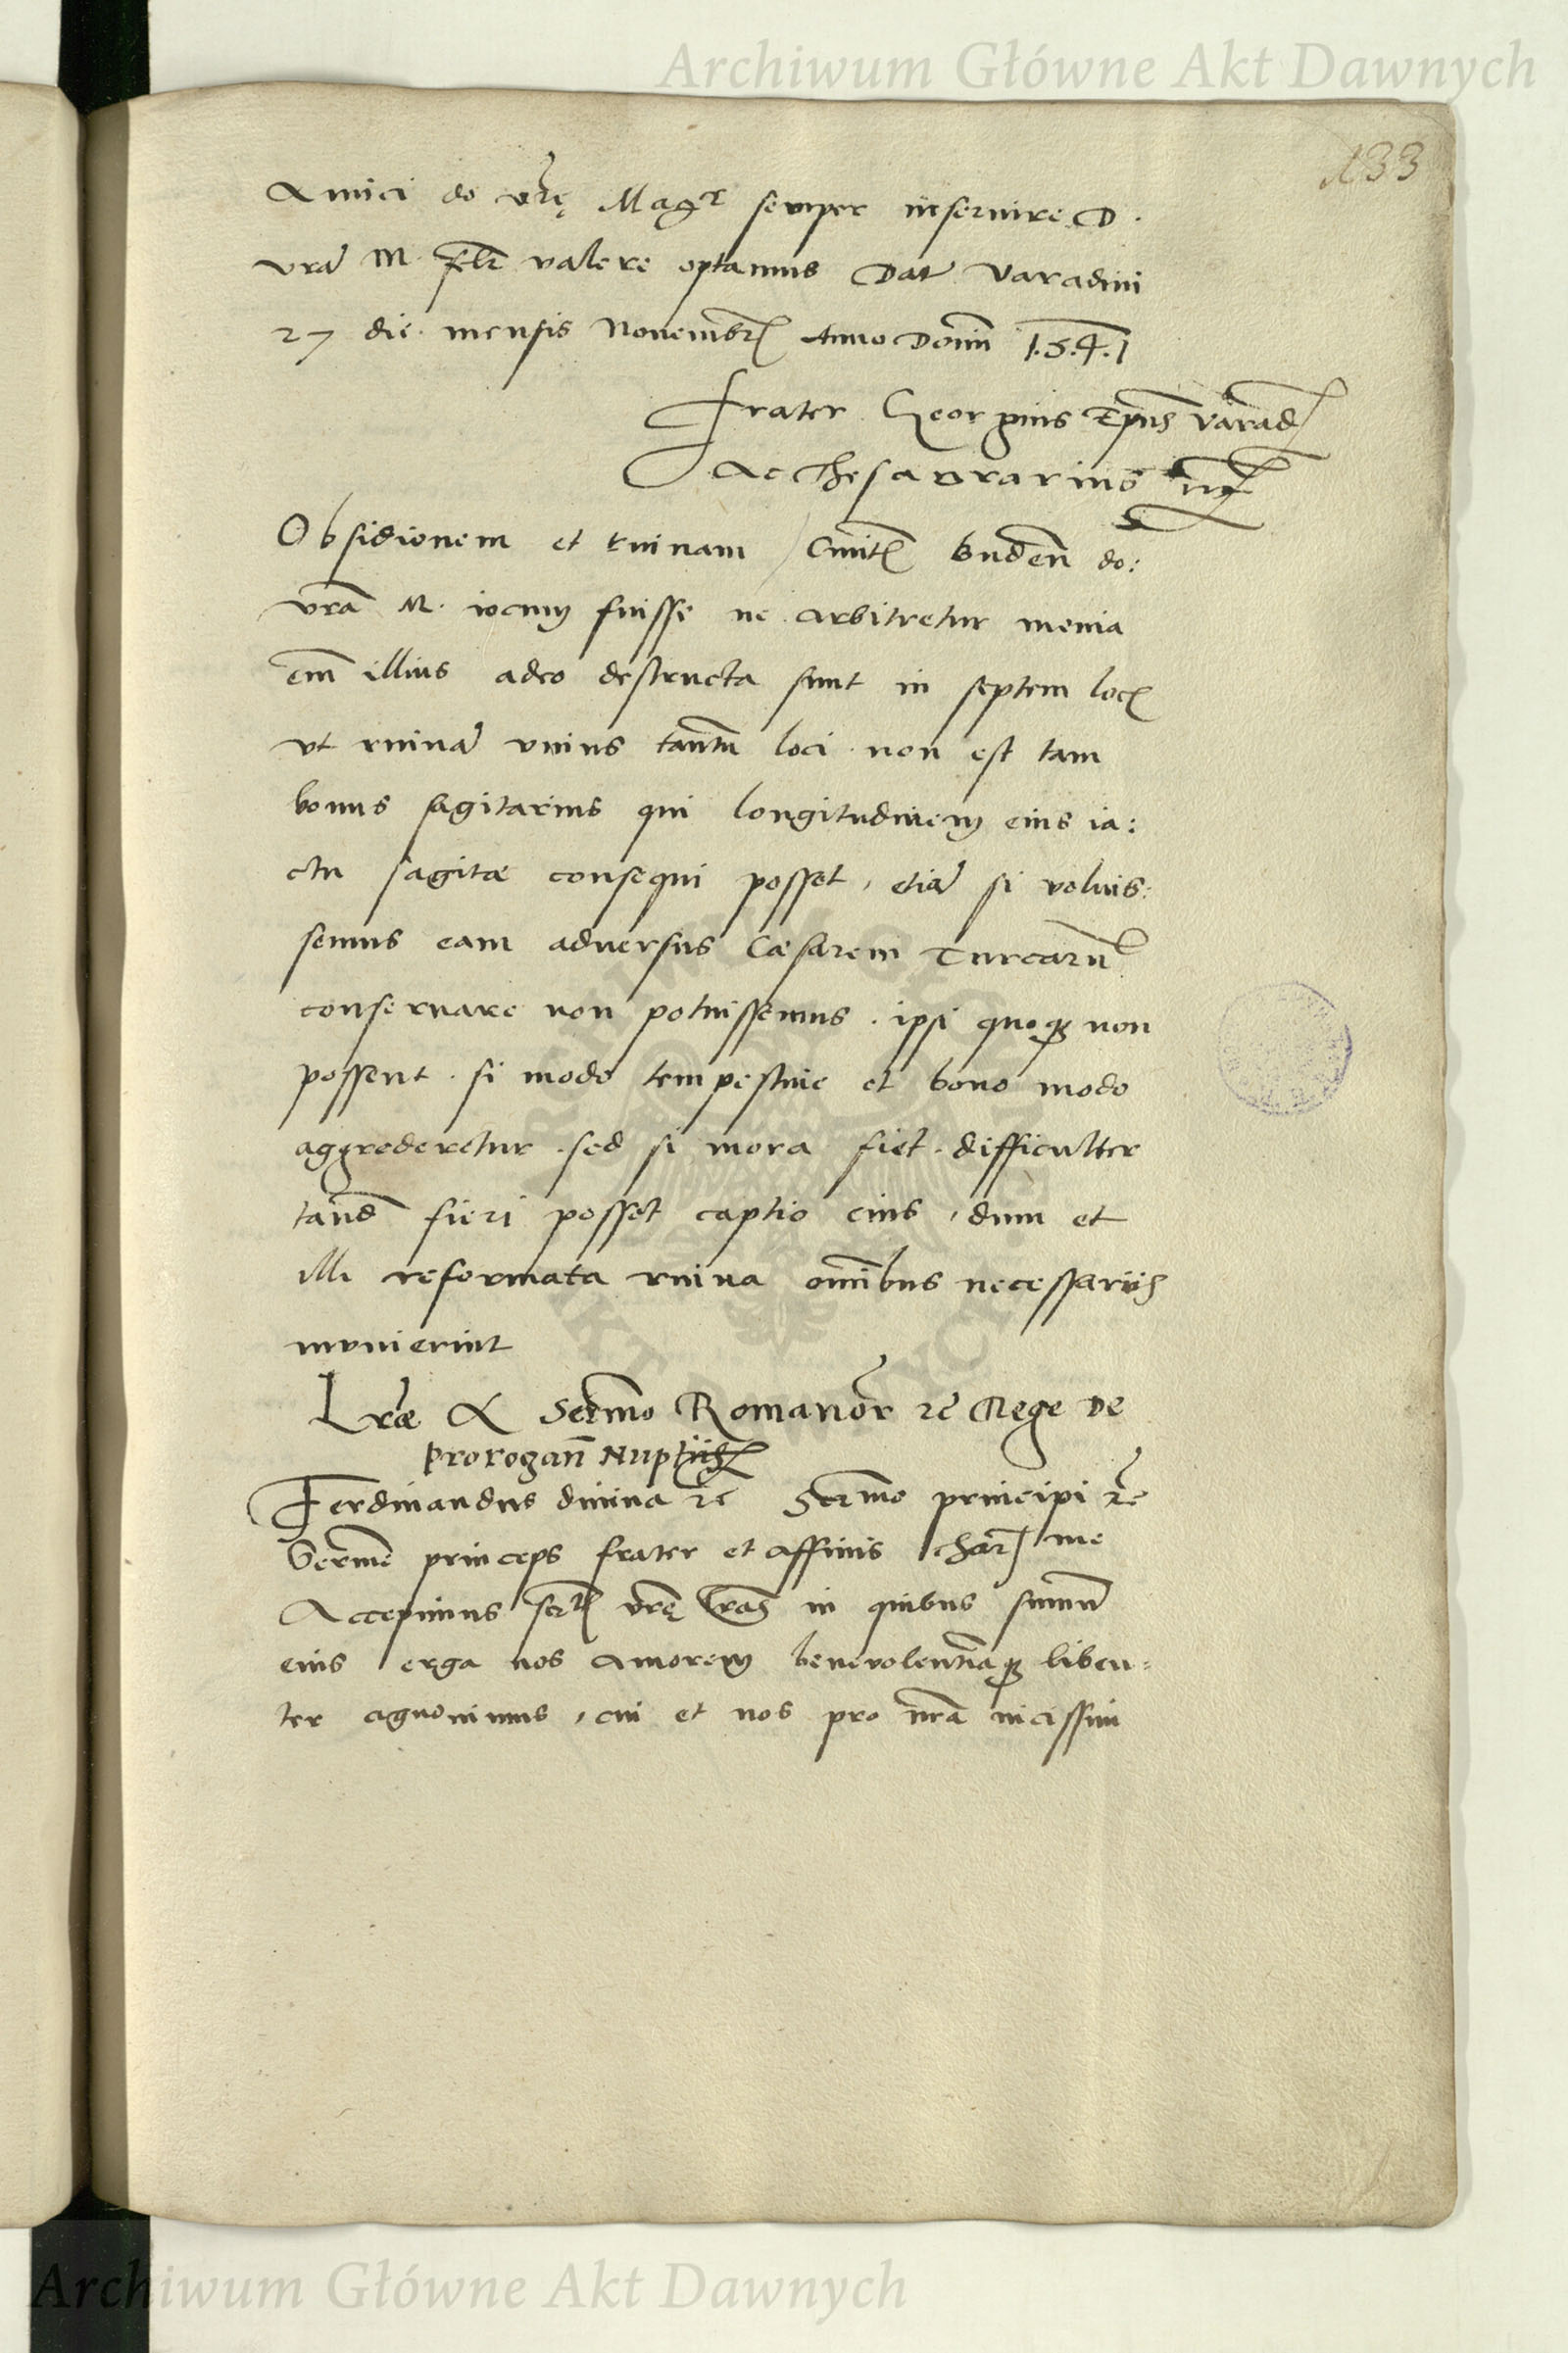 Archiwum Główne Akt Dawnych
133
Amici do vrę Magtֿ semper inservire D.
vrā M. felr valere optamus Dat Varadini
27 die mensis Novembr Anno Domi 1.5.4.1
Frater Georgius Epus Varad
Ac Thesaurarius
Obsidionem et ruinam Civit Buden do:
vrā M. iocum fuisse ne arbitretur menia
em illius adeo destructa sunt in septem loc
vt ruinā vnius tantū loci non est tam
bonus sagitarius qui longitudinem eius ia:
ctu sagitæ consequi posset, etiā si voluis:
semus eam adversus Cæsarem Turcarū
conservare non potuissemus. ipsi quoq3 non
possent. si modo tempestive et bono modo
aggrederetur. sed si mora fiet. difficulter
tand fieri posset captio eius, dum et
illi reformata ruina omibus necessariis
munierint
Lræ A Sermo Romanor rē Rege De
Prorogan Nuptiis
Ferdinandus divina rē Sermo principi rē
Serme princeps frater et affinis char me
Accepimus sertis vrę lras in quibus summū
eius erga nos amorem benevolentiāq3 liben=
ter agnovimus, cui et nos pro nrā vicissim
Archiwum Główne Akt Dawnych